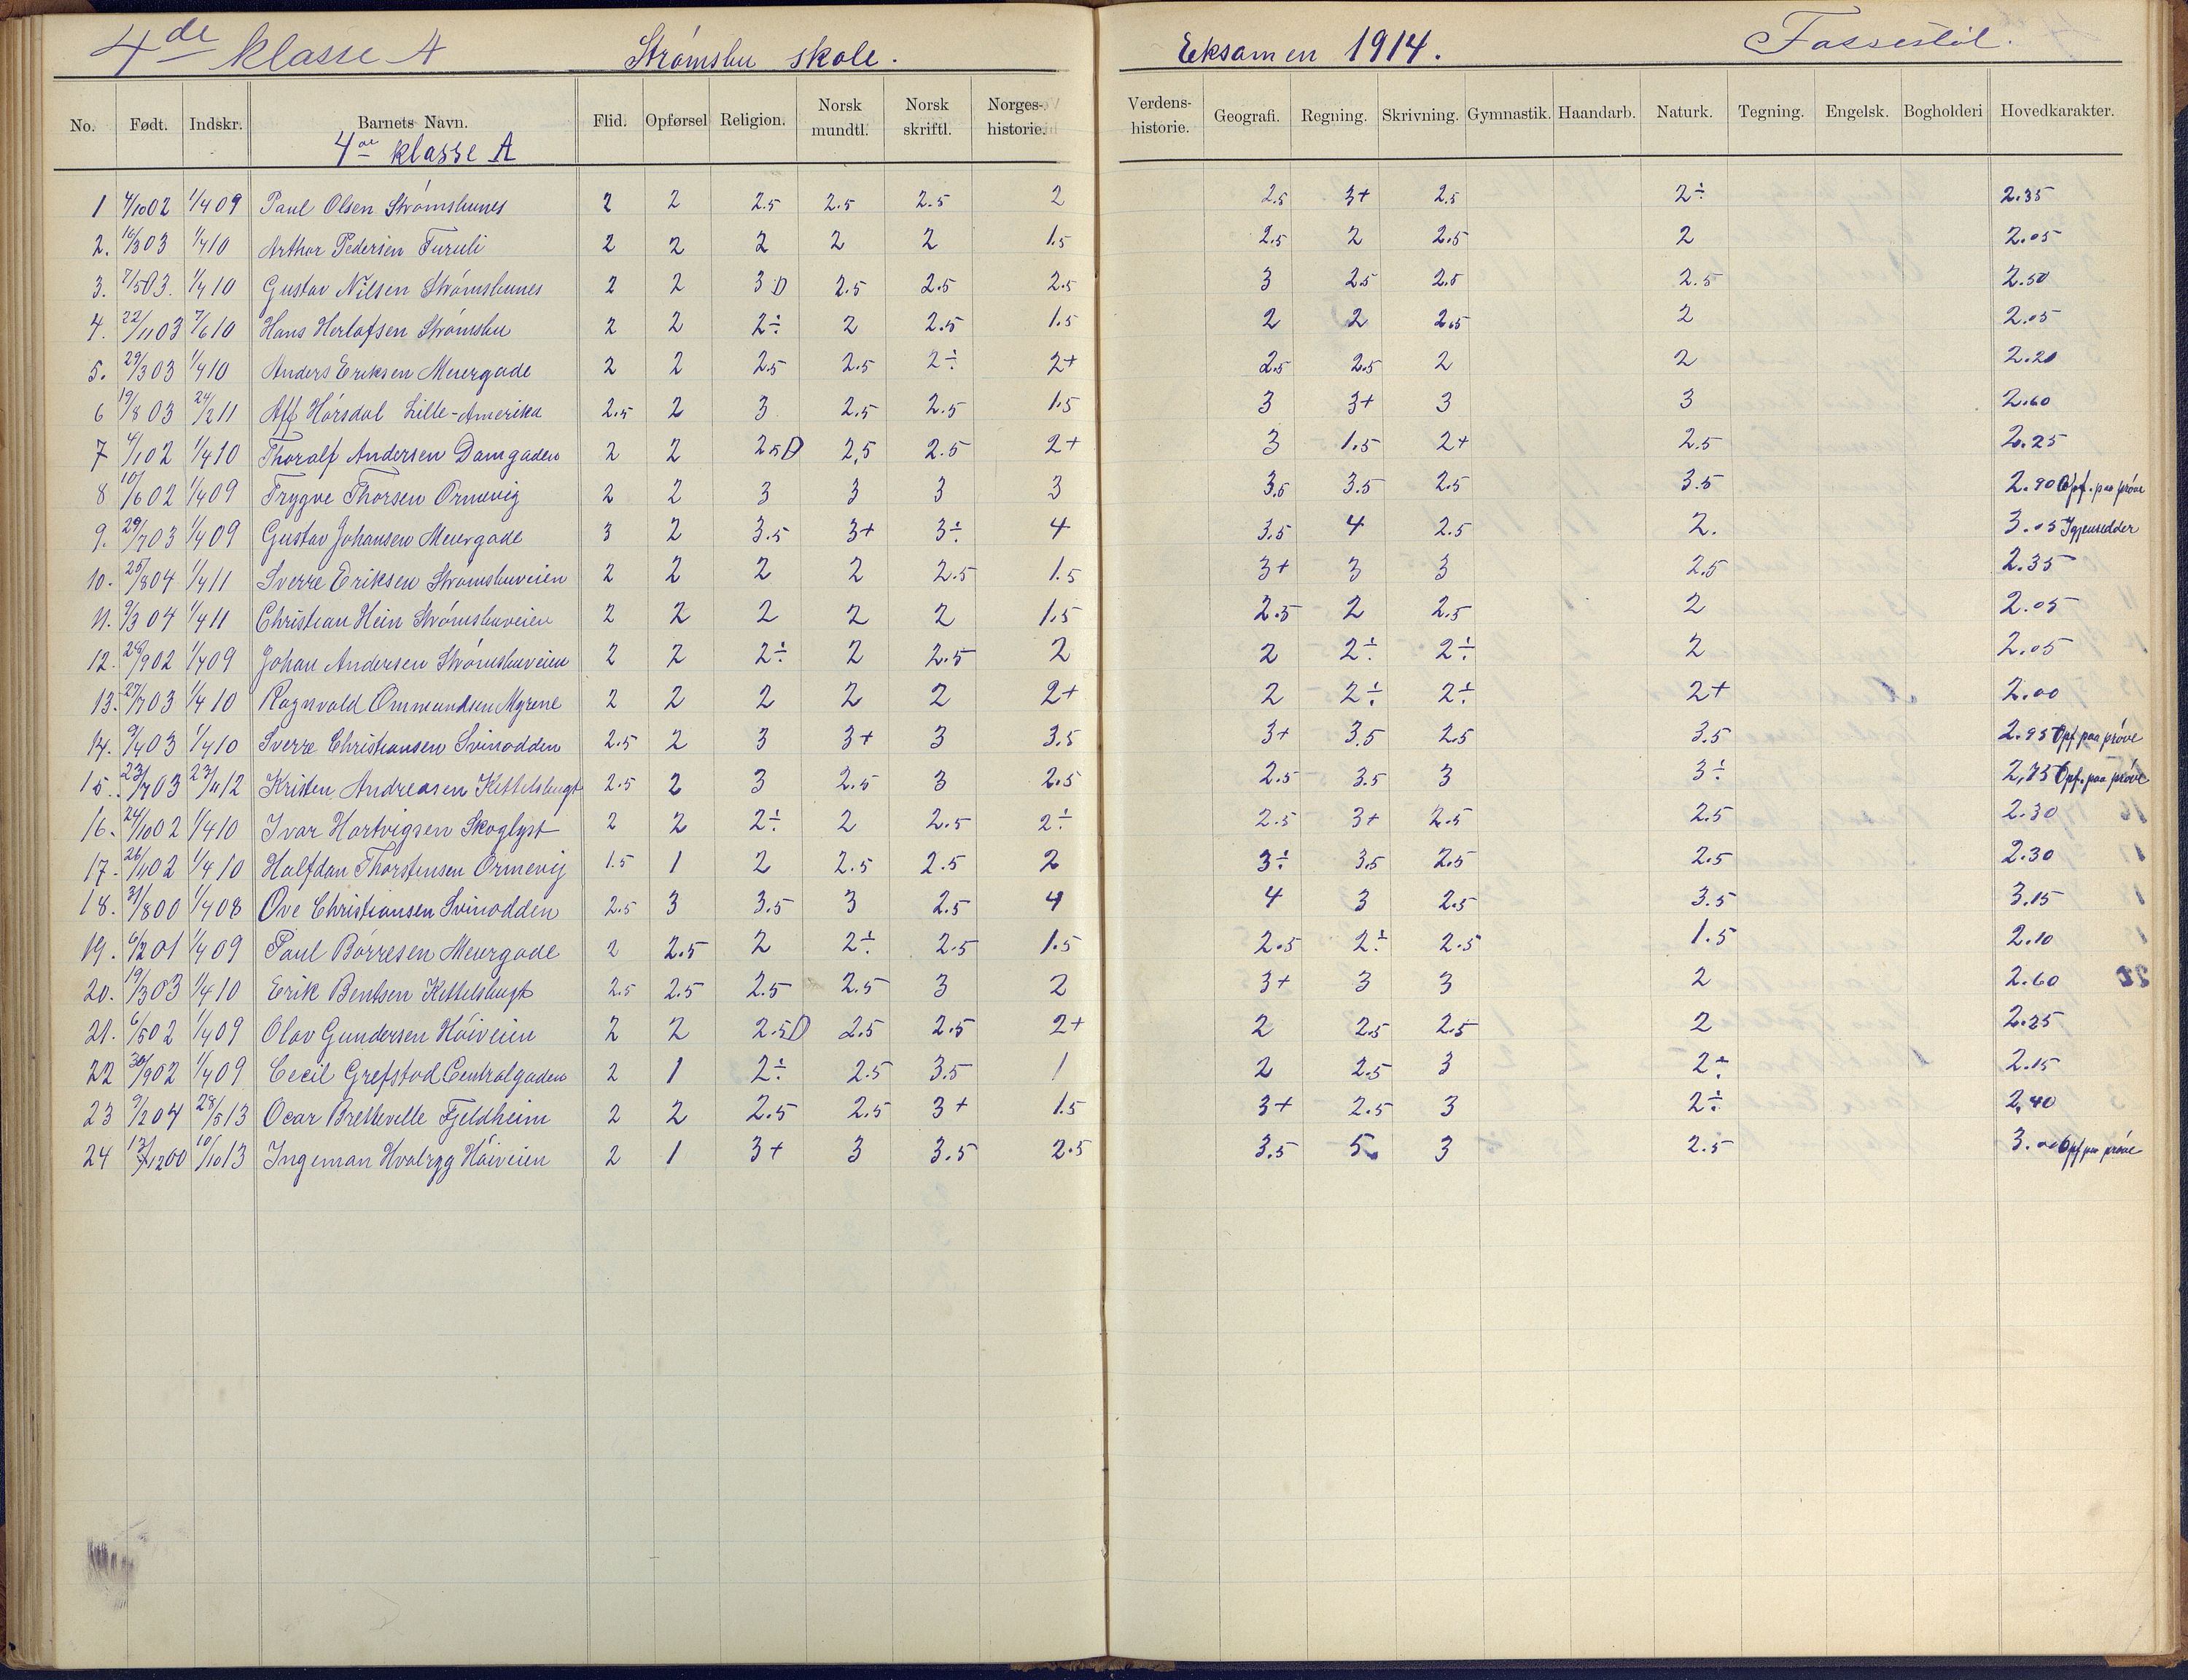 4de klasse A Strømsbu skole. Eksamen 1914. Fossestøl.
No. Født. Indskr. Barnets Navn. Flid. Opførsel Religion. Norsk mundtl. Norsk skriftl. Norges-historie. Verdens-historie. Geografi. Regning. Skrivning. Gymnastik. Haandarb. Naturk. Tegning. Engelsk. Bogholderi Hovedkarakter.
4de klasse A
1 4/10 02 1/4 09 Paul Olsen Strømsbunes 2 2 2.5 2.5 2.5 2 2.5 3+ 2.5 2÷ 2.35
2. 16/3 03 1/4 10 Arthur Pedersen Furuli 2 2 2 2 2 1.5 2.5 2 2.5 2 2.05
3. 7/5 03. 1/4 10 Gustav Nilsen Strømsbunes 2 2 3 D 2.5 2.5 2.5 3 2.5 2.5 2.5 2.50
4. 22/11 03 7/6 10 Hans Herlofsen Strømsbu 2 2 2÷ 2 2.5 1.5 2 2 2.5 2 2.05
5. 29/3 03 1/4 10 Anders Eriksen Meiergade 2 2 2.5 2.5 2÷ 2+ 2.5 2.5 2 2 2.20
6 19/8 03 24/2 11 Alf Hørsdal Lille-Amerika 2.5 2 3 2.5 2.5 1.5 3 3+ 3 3 2.60
7 4/1 02 1/4 10 Thoralf Andersen Damgaden 2 2 2.5 D 2,5 2.5 2+ 3 1.5 2+ 2.5 2.25
8 10/6 02 1/4 09 Trygve Thorsen Ormevig 2 2 3 3 3 3 3.5 3.5 2.5 3.5 2.90 Opf. paa prøve
9. 29/7 03 1/4 09 Gustav Johansen Meiergade 3 2 3.5 3+ 3÷ 4 3.5 4 2.5 2. 3.05 Igjensidder
10. 25/8 04 1/4 11 Sverre Eriksen Strømsbuveien 2 2 2 2 2.5 1.5 3+ 3 3 2.5 2.35
11. 9/3 04 1/4 11 Christian Hein Strømsbuveien 2 2 2 2 2 1.5 2.5 2 2.5 2 2.05
12. 28/9 02 1/4 09 Johan Andersen Strømsbuveien 2 2 2÷ 2 2.5 2 2 2÷ 2÷ 2 2.05
13. 27/7 03 1/4 10 Ragnvald Ommundsen Myrene 2 2 2 2 2 2+ 2 2÷ 2÷ 2+ 2.00
14. 9/4 03 1/4 10 Sverre Christiansen Svinodden 2.5 2 3 3+ 3 3.5 3+ 3.5 2.5 3.5 2.95 Opf paa prøve
15. 23/7 03 23/11 12 Kristen Andreasen Kittelsbugt 2.5 2 3 2.5 3 2.5 2.5 3.5 3 3÷ 2,75 Opf. paa prøve
16. 24/10 02 1/4 10 Ivar Hartvigsen Skoglyst 2 2 2÷ 2 2.5 2÷ 2.5 3+ 2.5 2.5 2.30
17. 26/11 02 1/4 10 Halfdan Thorstensen Ormevig 1.5 1 2 2.5 2.5 2 3÷ 3.5 2.5 2.5 2.30
18. 31/8 00 1/4 08 Ove Christiansen Svinodden 2.5 3 3.5 3 2.5 4 4 3 2.5 3.5 3.15
19. 6/2 01 1/4 09 Paul Børresen Meiergade 2 2.5 2 2÷ 2.5 1.5 2.5 2÷ 2.5 1.5 2.10
20. 19/3 03 1/4 10 Erik Bentsen Kittelsbugt 2.5 2.5 2.5 2.5 3 2 3+ 3 3 2 2.60
21. 6/5 02 1/4 09 Olav Gundersen Høiveien 2 2 2.5 D 2.5 2.5 2+ 2 2.5 2.5 2 2.25
22 30/9 02 1/4 09 Cecil Grefstad Centralgaden 2 1 2÷ 2.5 3.5 1 2 2.5 3 2÷ 2.15
23 9/2 04 28/5 13 Ocar Bretteville Fjeldheim 2 2 2.5 2.5 3+ 1.5 3+ 2.5 3 2÷ 2,40
24 13/12 00 10/10 13 Ingeman Hvalryg Høiveien 2 1 3+ 3 3.5 2.5 3.5 5 3 2.5 3.00 Opf paa prøve